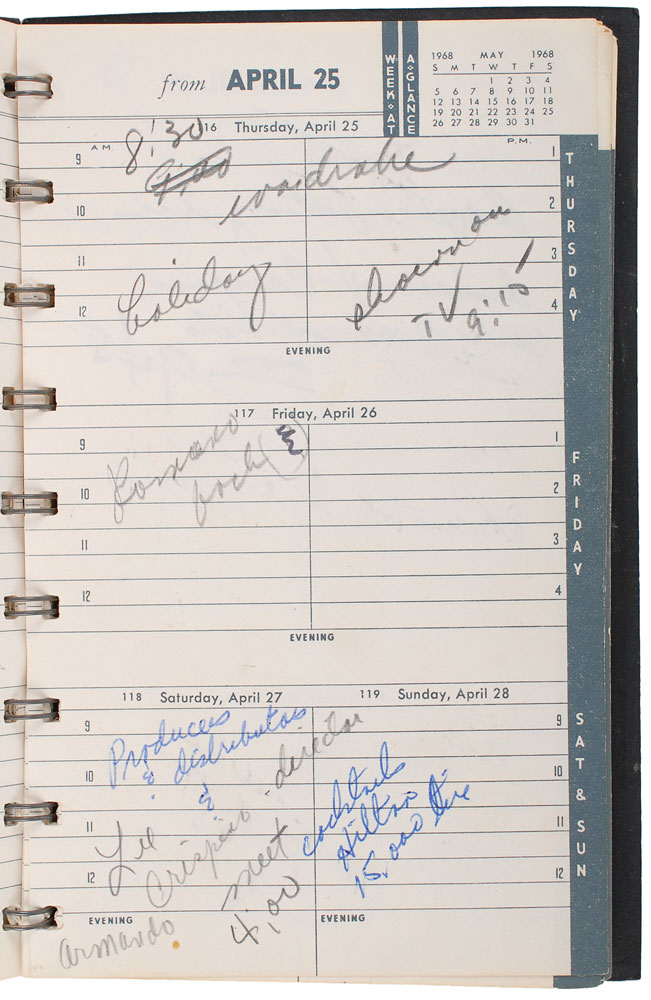 from APRIL 25
WEEK-AT
A-GLANCE
1968 MAY 1968
S M T W T F S
1 2 3 4
5 6 7 8 9 10 11
12 13 14 15 16 17 18
19 20 21 22 23 24 25
26 27 28 29 30 31
116 Thursday, April 25
A.M.
P.M.
8:30
9
1
wardrobe
10
2
11
3
holiday
showman
12
4
TV 9:15
EVENING
THURSDAY
117 Friday, April 26
9
1
Romano
10
2
11
3
12
4
EVENING
FRIDAY
118 Saturday, April 27
119 Sunday, April 28
9
9
Producers
& distributors
10
10
&
director
cocktails
Hilton
11
11
15,000 lire
Lee
Crispino
meet
12
12
4:00
EVENING
EVENING
Armando
SAT & SUN